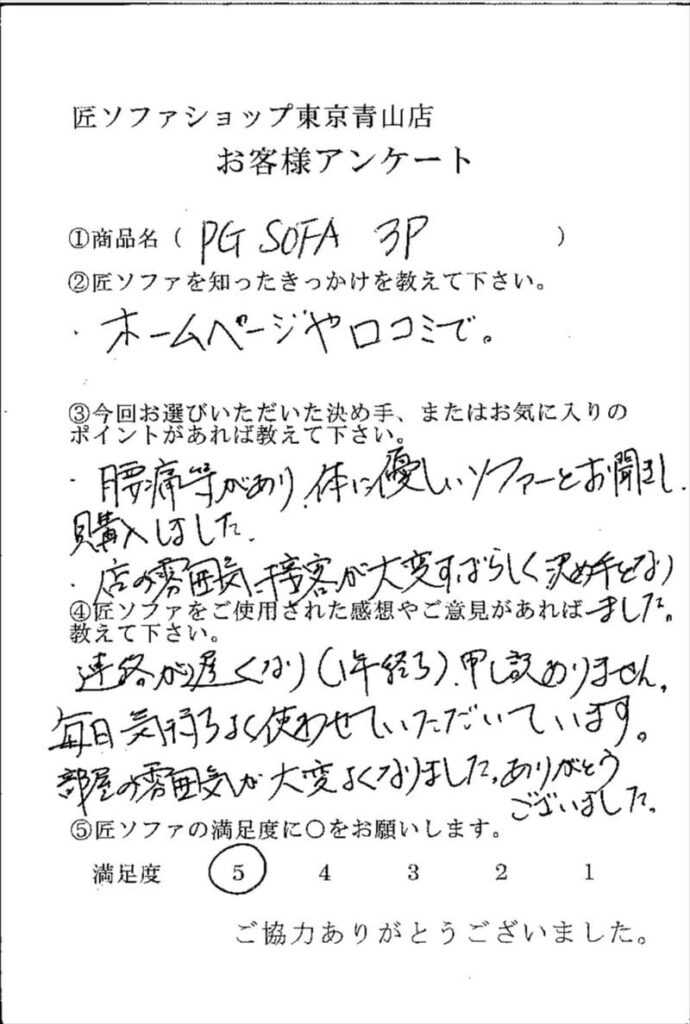 匠ソファショップ東京青山店
お客様アンケート
①商品名（ PG SOFA 3P ）
②匠ソファを知ったきっかけを教えて下さい。
・ホームページや口コミで。
③今回お選びいただいた決め手、またはお気に入りの
ポイントがあれば教えて下さい。
・腰痛等があり、体に優しいソファーとお聞きし、
購入しました。
・店の雰囲気、接客が大変すばらしく決め手となり
④匠ソファをご使用された感想やご意見があれば ました。
教えて下さい。
連絡が遅くなり(1年経ち)、申し訳ありません。
毎日気持ちよく使わせていただいています。
部屋の雰囲気が大変よくなりました。ありがとう
ございました。
⑤匠ソファの満足度に○をお願いします。
満足度 5 4 3 2 1
ご協力ありがとうございました。